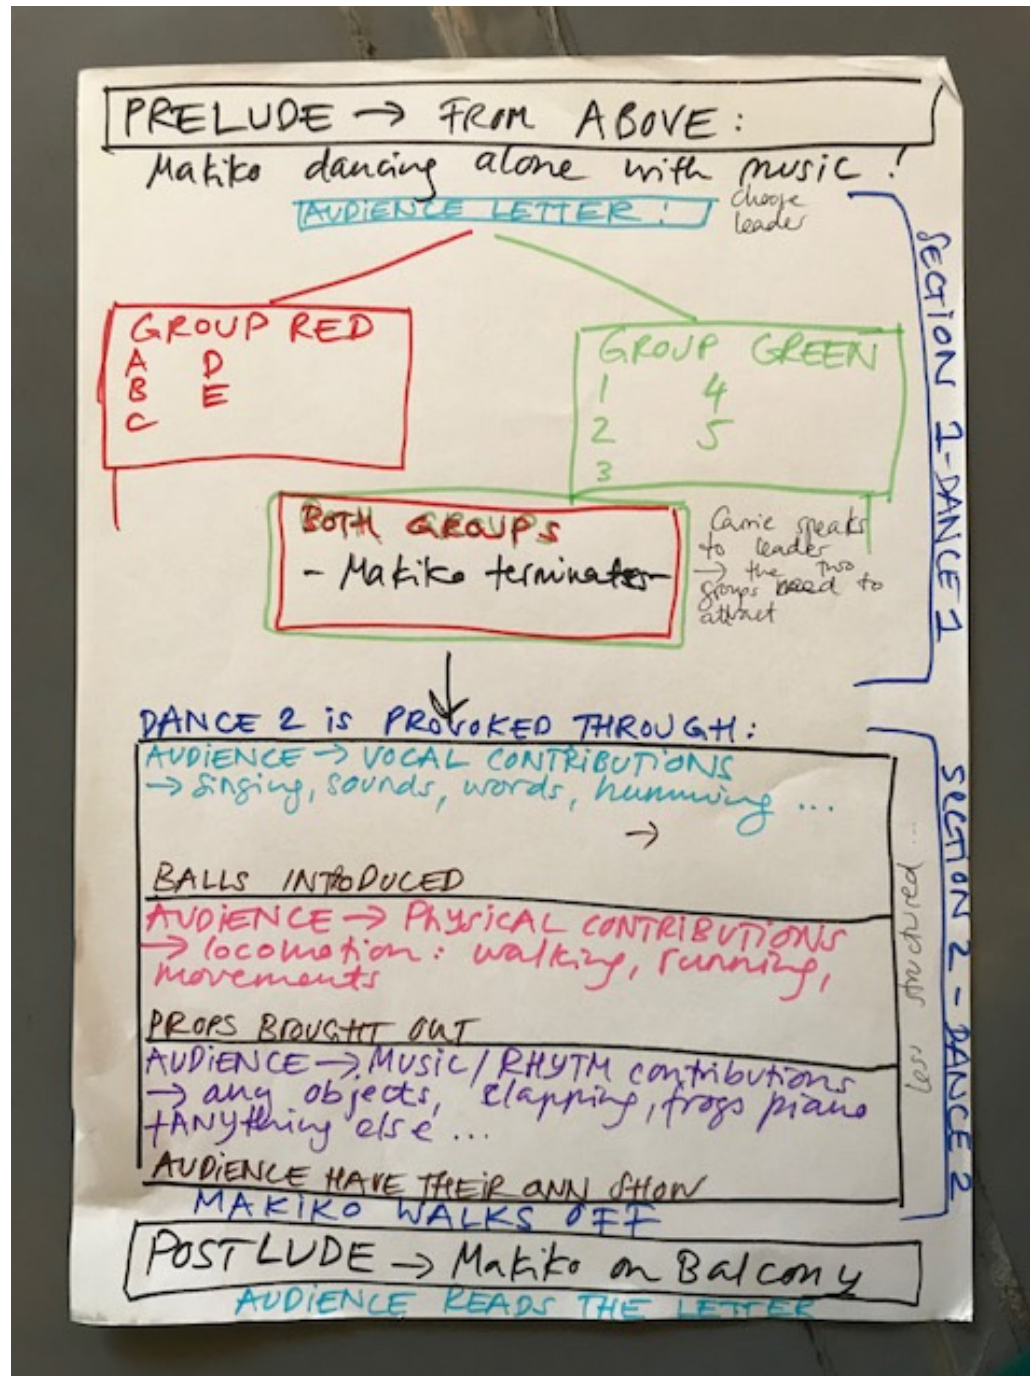 PRELUDE → FROM ABOVE:
Makiko dancing alone with music!
AUDIENCE LETTER:
choose
leader
SECTION 1-DANCE 1
GROUP RED
A D
B E
C
GROUP GREEN
1 4
2 5
3
BOTH GROUPS
- Makiko terminates -
Carrie speaks
to leader
→ the two
groups need to
attract
DANCE 2 is PROVOKED THROUGH:
AUDIENCE → VOCAL CONTRIBUTIONS
→ singing, sounds, words, humming ...
→
BALLS INTRODUCED
AUDIENCE → PHYSICAL CONTRIBUTIONS
→ locomotion: walking, running,
movements
PROPS BROUGHT OUT
AUDIENCE → MUSIC/RHYTM contributions
→ any objects, clapping, frogs piano
+ANYthing else ...
AUDIENCE HAVE THEIR ANN SHOW
less structured ...
SECTION 2 - DANCE 2
MAKIKO WALKS OFF
POSTLUDE → Makiko on Balcony
AUDIENCE READS THE LETTER